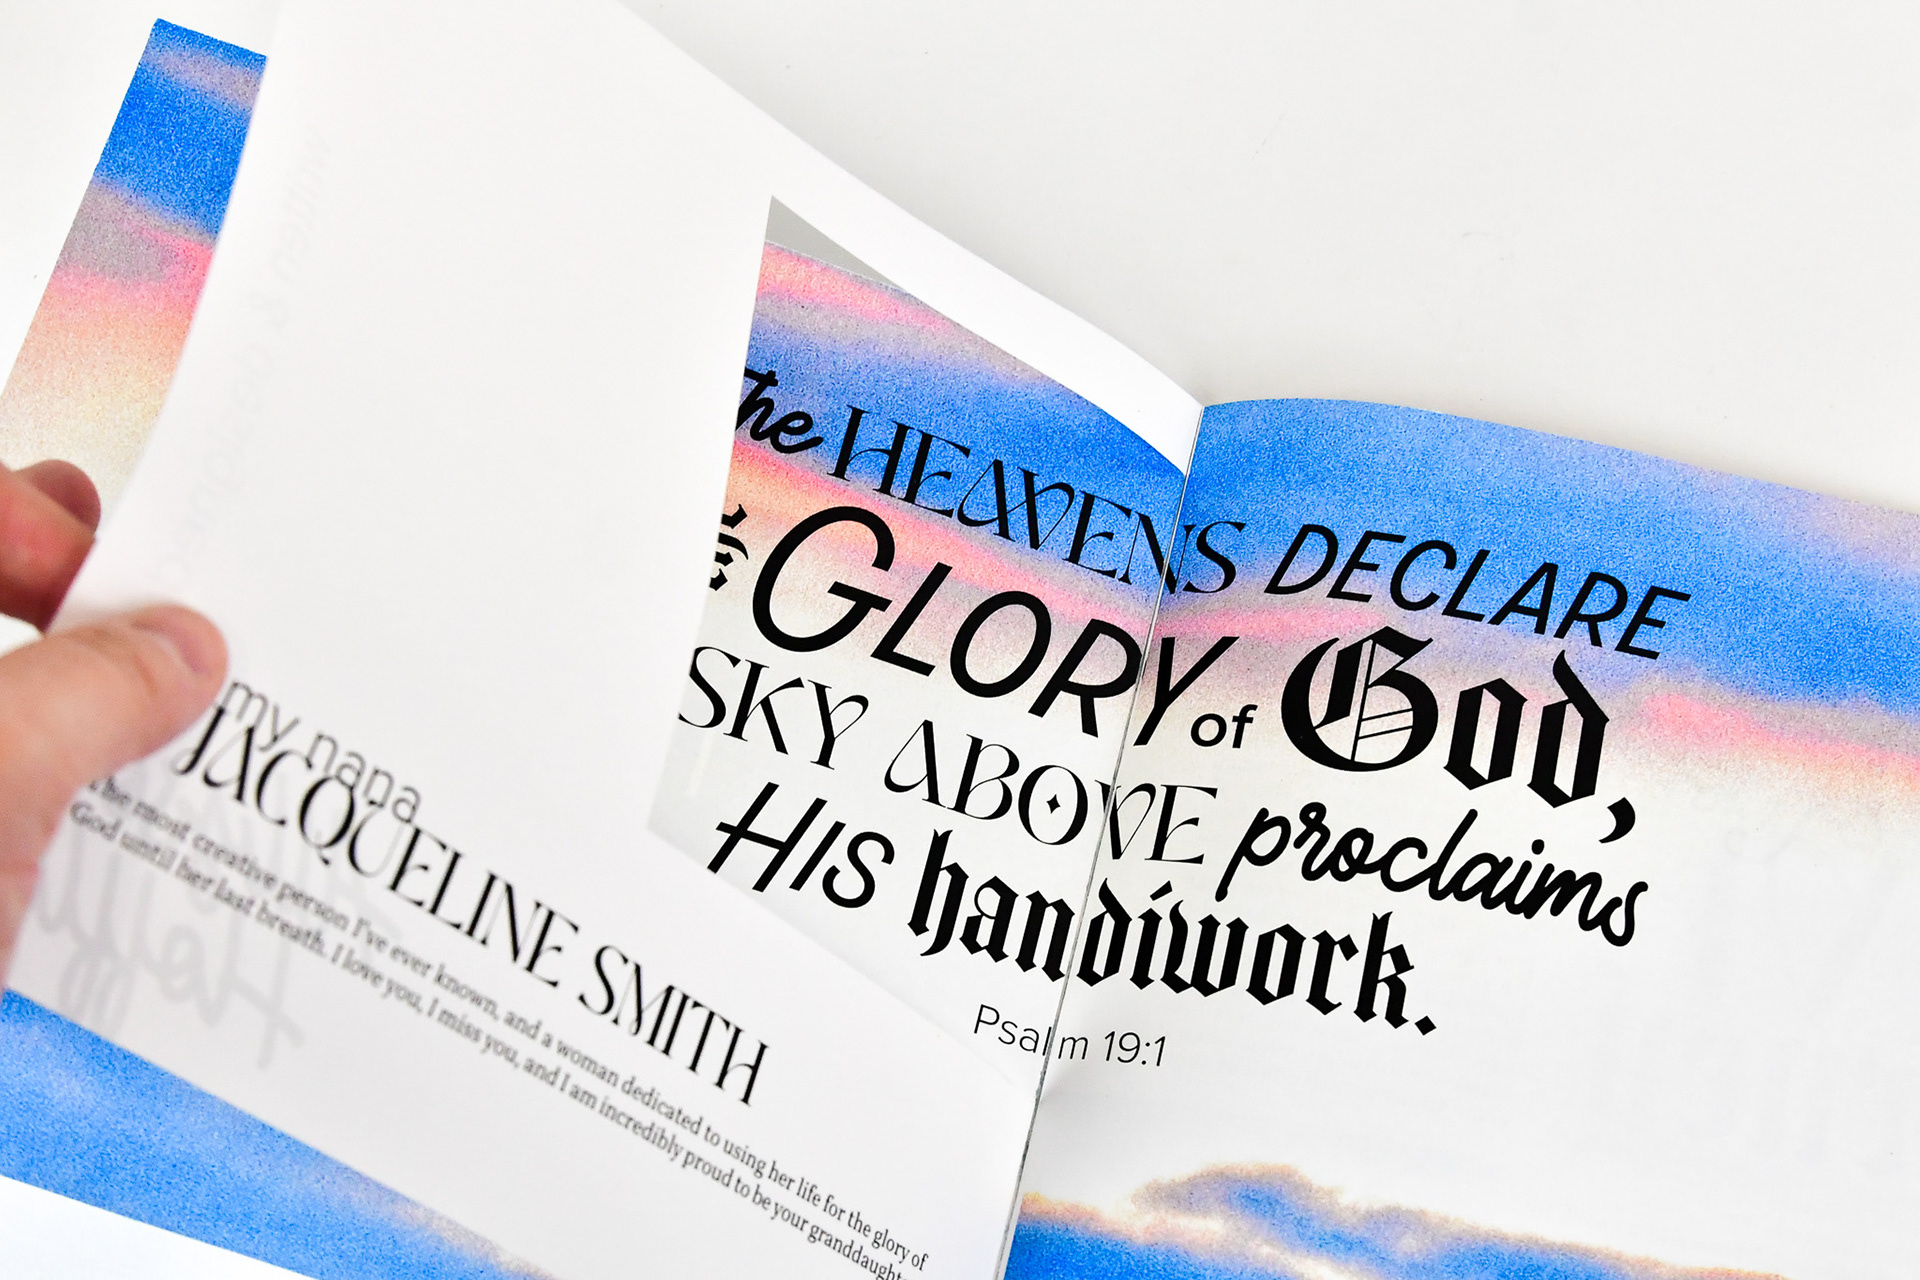 my nana
JACQUELINE SMITH
the most creative person I've ever known, and a woman dedicated to using her life for the glory of
God until her last breath. I love you, I miss you, and I am incredibly proud to be your
The HEAVENS DECLARE
GLORY of God,
SKY ABOVE proclaims
HIS handiwork.
Psalm 19:1